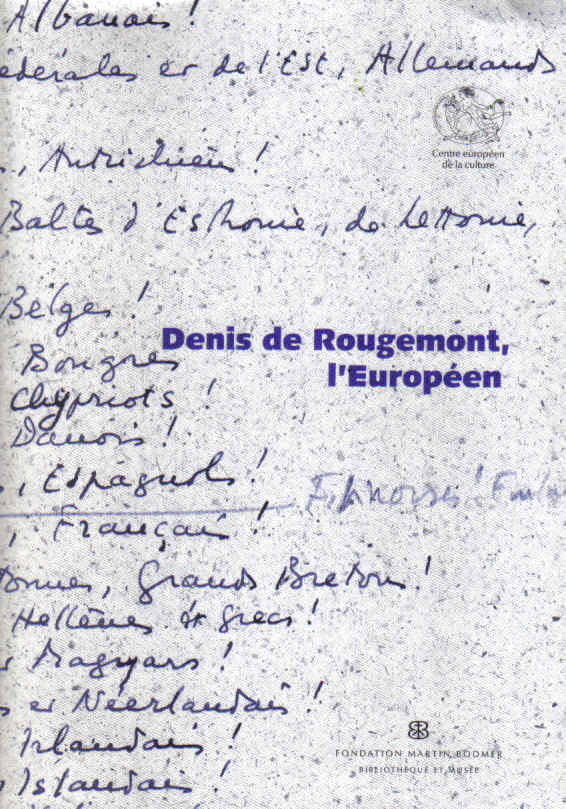 Albanais !
édérales et de l'Est, Allemands
Centre européen
de la culture
, Autrichiens !
Baltes d'Esthonie, de Lettonie,
Belges !
Denis de Rougemont,
l'Européen
Bougres
Chypriots !
Danois !
, Espagnols !
, Français !
tonnes, Grands Bretons !
Hellènes & grecs !
Magyars !
s et Néerlandais !
Irlandais !
FONDATION MARTIN BODMER
BIBLIOTHÈQUE ET MUSÉE
Islandais !